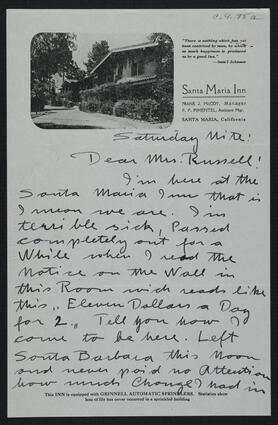 "There is nothing which has yet
been contrived by man, by which
so much happiness is produced
as by a good Inn."
—Sam'l Johnson
Santa Maria Inn
FRANK J. McCOY, Manager
F. P. PIMENTEL, Assistant Mgr.
SANTA MARIA, California
Saturday Nite!
Dear Mrs. Russell!
I'm here at the
Santa Maria Inn that is
I mean we are. I'm
terrible sick, Passed
completely out for a
While when I read the
Notice on the Wall in
this Room wich reads like
this „ Eleven Dollars a Day
for 2 „ Tell you how I
come to be here. Left
Santa Barbara this Noon
and never paid no Attention
how much Change I had in
This INN is equipped with GRINNELL AUTOMATIC SPRINKLERS. Statistics show
loss of life has never occurred in a sprinkled building